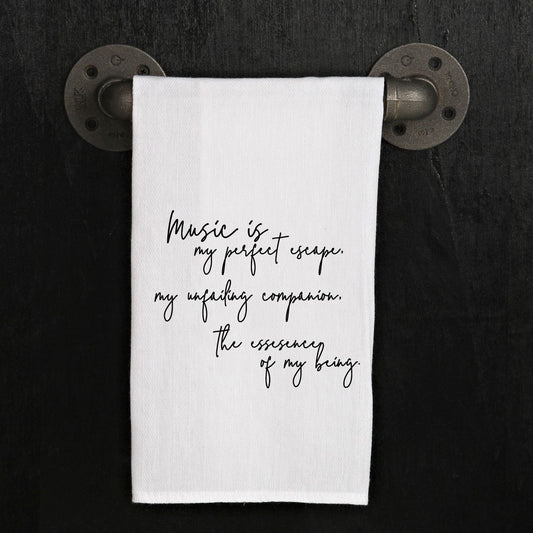 Music is
my perfect escape,
my unfailing companion,
the essesence
of my being.